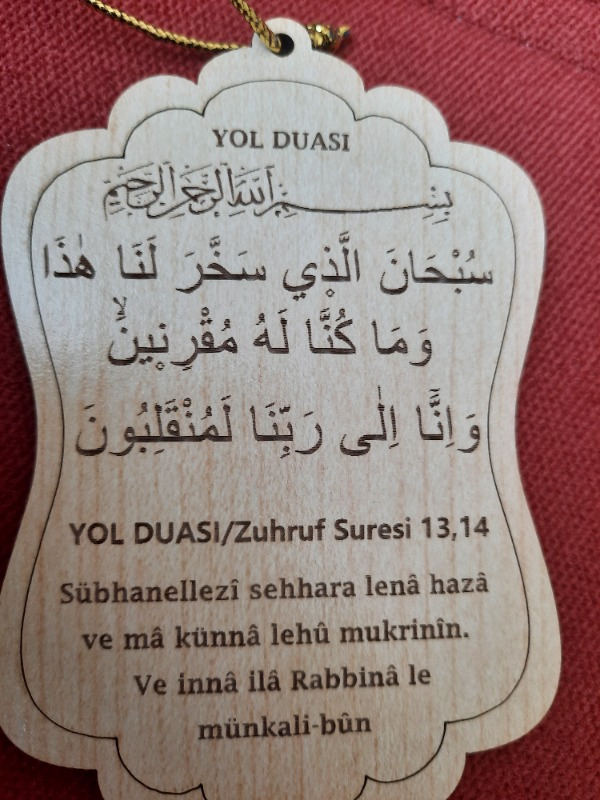 YOL DUASI
بِسْمِ اللهِ الرَّحْمٰنِ الرَّحِيْمِ
سُبْحَانَ الَّذِي سَخَّرَ لَنَا هٰذَا
وَمَا كُنَّا لَهُ مُقْرِنِينَۙ
وَاِنَّٓا اِلٰى رَبِّنَا لَمُنْقَلِبُونَ
YOL DUASI/Zuhruf Suresi 13,14
Sübhanellezî sehhara lenâ hazâ
ve mâ künnâ lehû mukrinîn.
Ve innâ ilâ Rabbinâ le
münkali-bûn